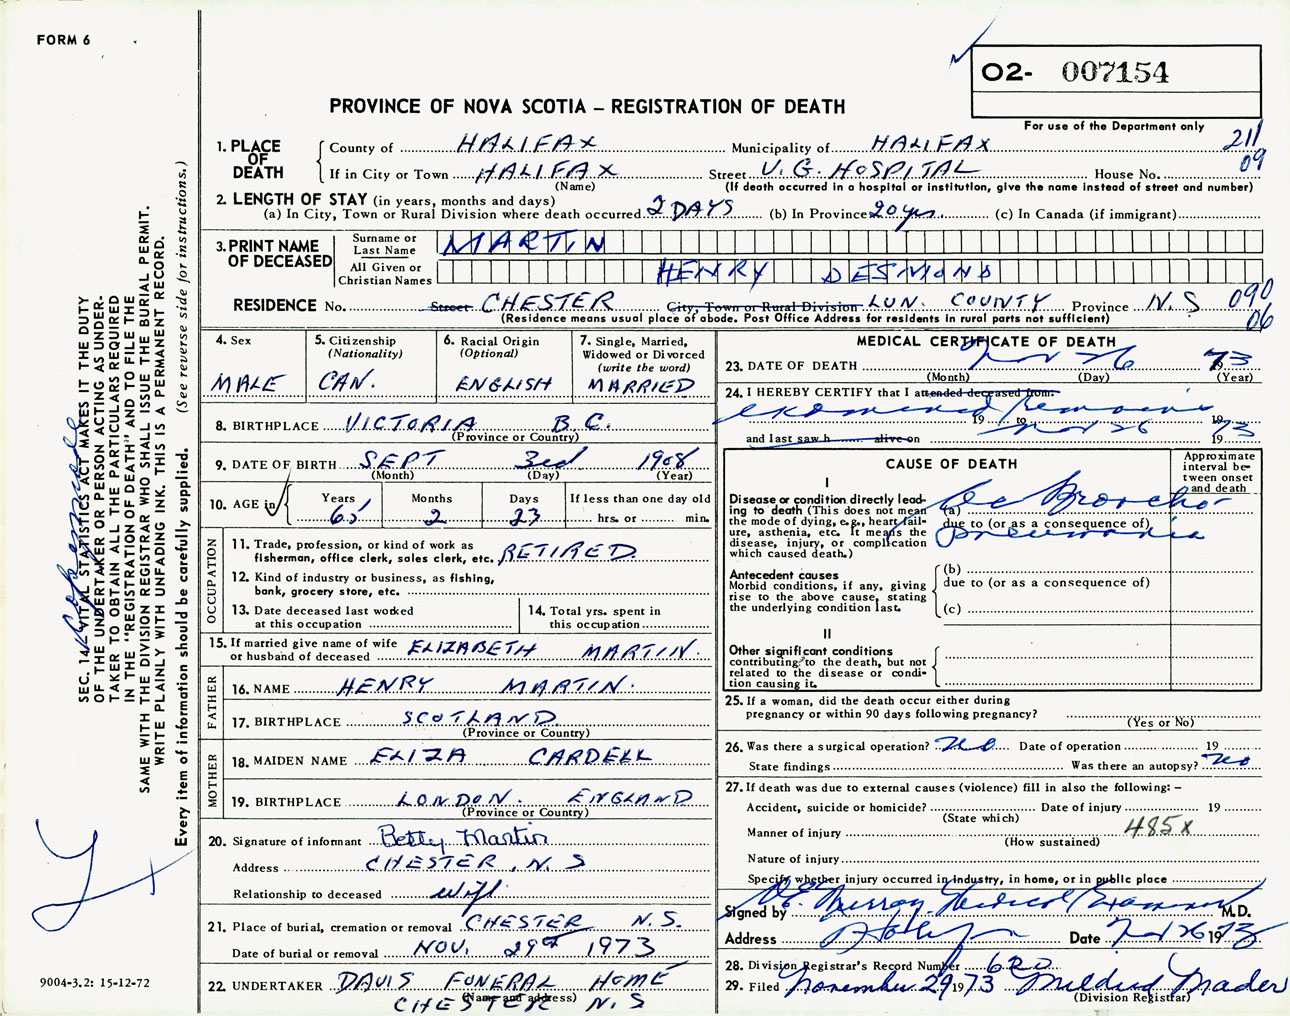 FORM 6
02- 007154
For use of the Department only
PROVINCE OF NOVA SCOTIA – REGISTRATION OF DEATH
211
09
1. PLACE OF DEATH County of HALIFAX Municipality of HALIFAX
If in City or Town HALIFAX Street V. G. HOSPITAL House No.
(Name) (If death occurred in a hospital or institution, give the name instead of street and number)
2. LENGTH OF STAY (in years, months and days)
(a) In City, Town or Rural Division where death occurred. 2 DAYS (b) In Province 20 yrs. (c) In Canada (if immigrant)
3. PRINT NAME OF DECEASED Surname or Last Name MARTIN
All Given or Christian Names HENRY DESMOND
RESIDENCE No. Street CHESTER City, Town or Rural Division LUN. COUNTY Province N.S 090
(Residence means usual place of abode. Post Office Address for residents in rural parts not sufficient) 06
4. Sex MALE
5. Citizenship (Nationality) CAN.
6. Racial Origin (Optional) ENGLISH
7. Single, Married, Widowed or Divorced (write the word) MARRIED
8. BIRTHPLACE VICTORIA B.C.
(Province or Country)
9. DATE OF BIRTH SEPT 3rd 1908
(Month) (Day) (Year)
10. AGE in Years 65 Months 2 Days 23 If less than one day old hrs. or min.
OCCUPATION
11. Trade, profession, or kind of work as fisherman, office clerk, sales clerk, etc. RETIRED
12. Kind of industry or business, as fishing, bank, grocery store, etc.
13. Date deceased last worked at this occupation
14. Total yrs. spent in this occupation
15. If married give name of wife or husband of deceased ELIZABETH MARTIN.
FATHER
16. NAME HENRY MARTIN.
17. BIRTHPLACE SCOTLAND
(Province or Country)
MOTHER
18. MAIDEN NAME ELIZA CARDELL
19. BIRTHPLACE LONDON. ENGLAND
(Province or Country)
20. Signature of informant Betty Martin
Address CHESTER, N. S
Relationship to deceased wife
21. Place of burial, cremation or removal CHESTER N.S.
Date of burial or removal NOV. 29th 1973
22. UNDERTAKER DAVIS FUNERAL HOME
(Name and address)
CHESTER N. S
MEDICAL CERTIFICATE OF DEATH
23. DATE OF DEATH Nov 26 1973
(Month) (Day) (Year)
24. I HEREBY CERTIFY that I attended deceased from:
examined remains 19 to 19
and last saw h alive on Nov 26 1973
CAUSE OF DEATH
Approximate interval between onset and death
I
Disease or condition directly leading to death (This does not mean the mode of dying, e.g., heart failure, asthenia, etc. It means the disease, injury, or complication which caused death.)
(a) Ac Broncho-
due to (or as a consequence of)
pneumonia
Antecedent causes
Morbid conditions, if any, giving rise to the above cause, stating the underlying condition last.
(b)
due to (or as a consequence of)
(c)
II
Other significant conditions contributing to the death, but not related to the disease or condition causing it.
25. If a woman, did the death occur either during pregnancy or within 90 days following pregnancy?
(Yes or No)
26. Was there a surgical operation? no Date of operation 19
State findings Was there an autopsy? no
27. If death was due to external causes (violence) fill in also the following: –
Accident, suicide or homicide? Date of injury 19
(State which)
Manner of injury 485x
(How sustained)
Nature of injury
Specify whether injury occurred in industry, in home, or in public place
Signed by Murray Medical Examiner M.D.
Address Halifax Date Nov 26 1973
28. Division Registrar's Record Number 620
29. Filed November 29 1973 Mildred Mader
(Division Registrar)
SEC. 14, VITAL STATISTICS ACT MAKES IT THE DUTY
OF THE UNDERTAKER OR PERSON ACTING AS UNDER-
TAKER TO OBTAIN ALL THE PARTICULARS REQUIRED
IN THE "REGISTRATION OF DEATH" AND TO FILE THE
SAME WITH THE DIVISION REGISTRAR WHO SHALL ISSUE THE BURIAL PERMIT.
WRITE PLAINLY WITH UNFADING INK. THIS IS A PERMANENT RECORD.
Every item of information should be carefully supplied. (See reverse side for instructions.)
9004-3.2: 15-12-72